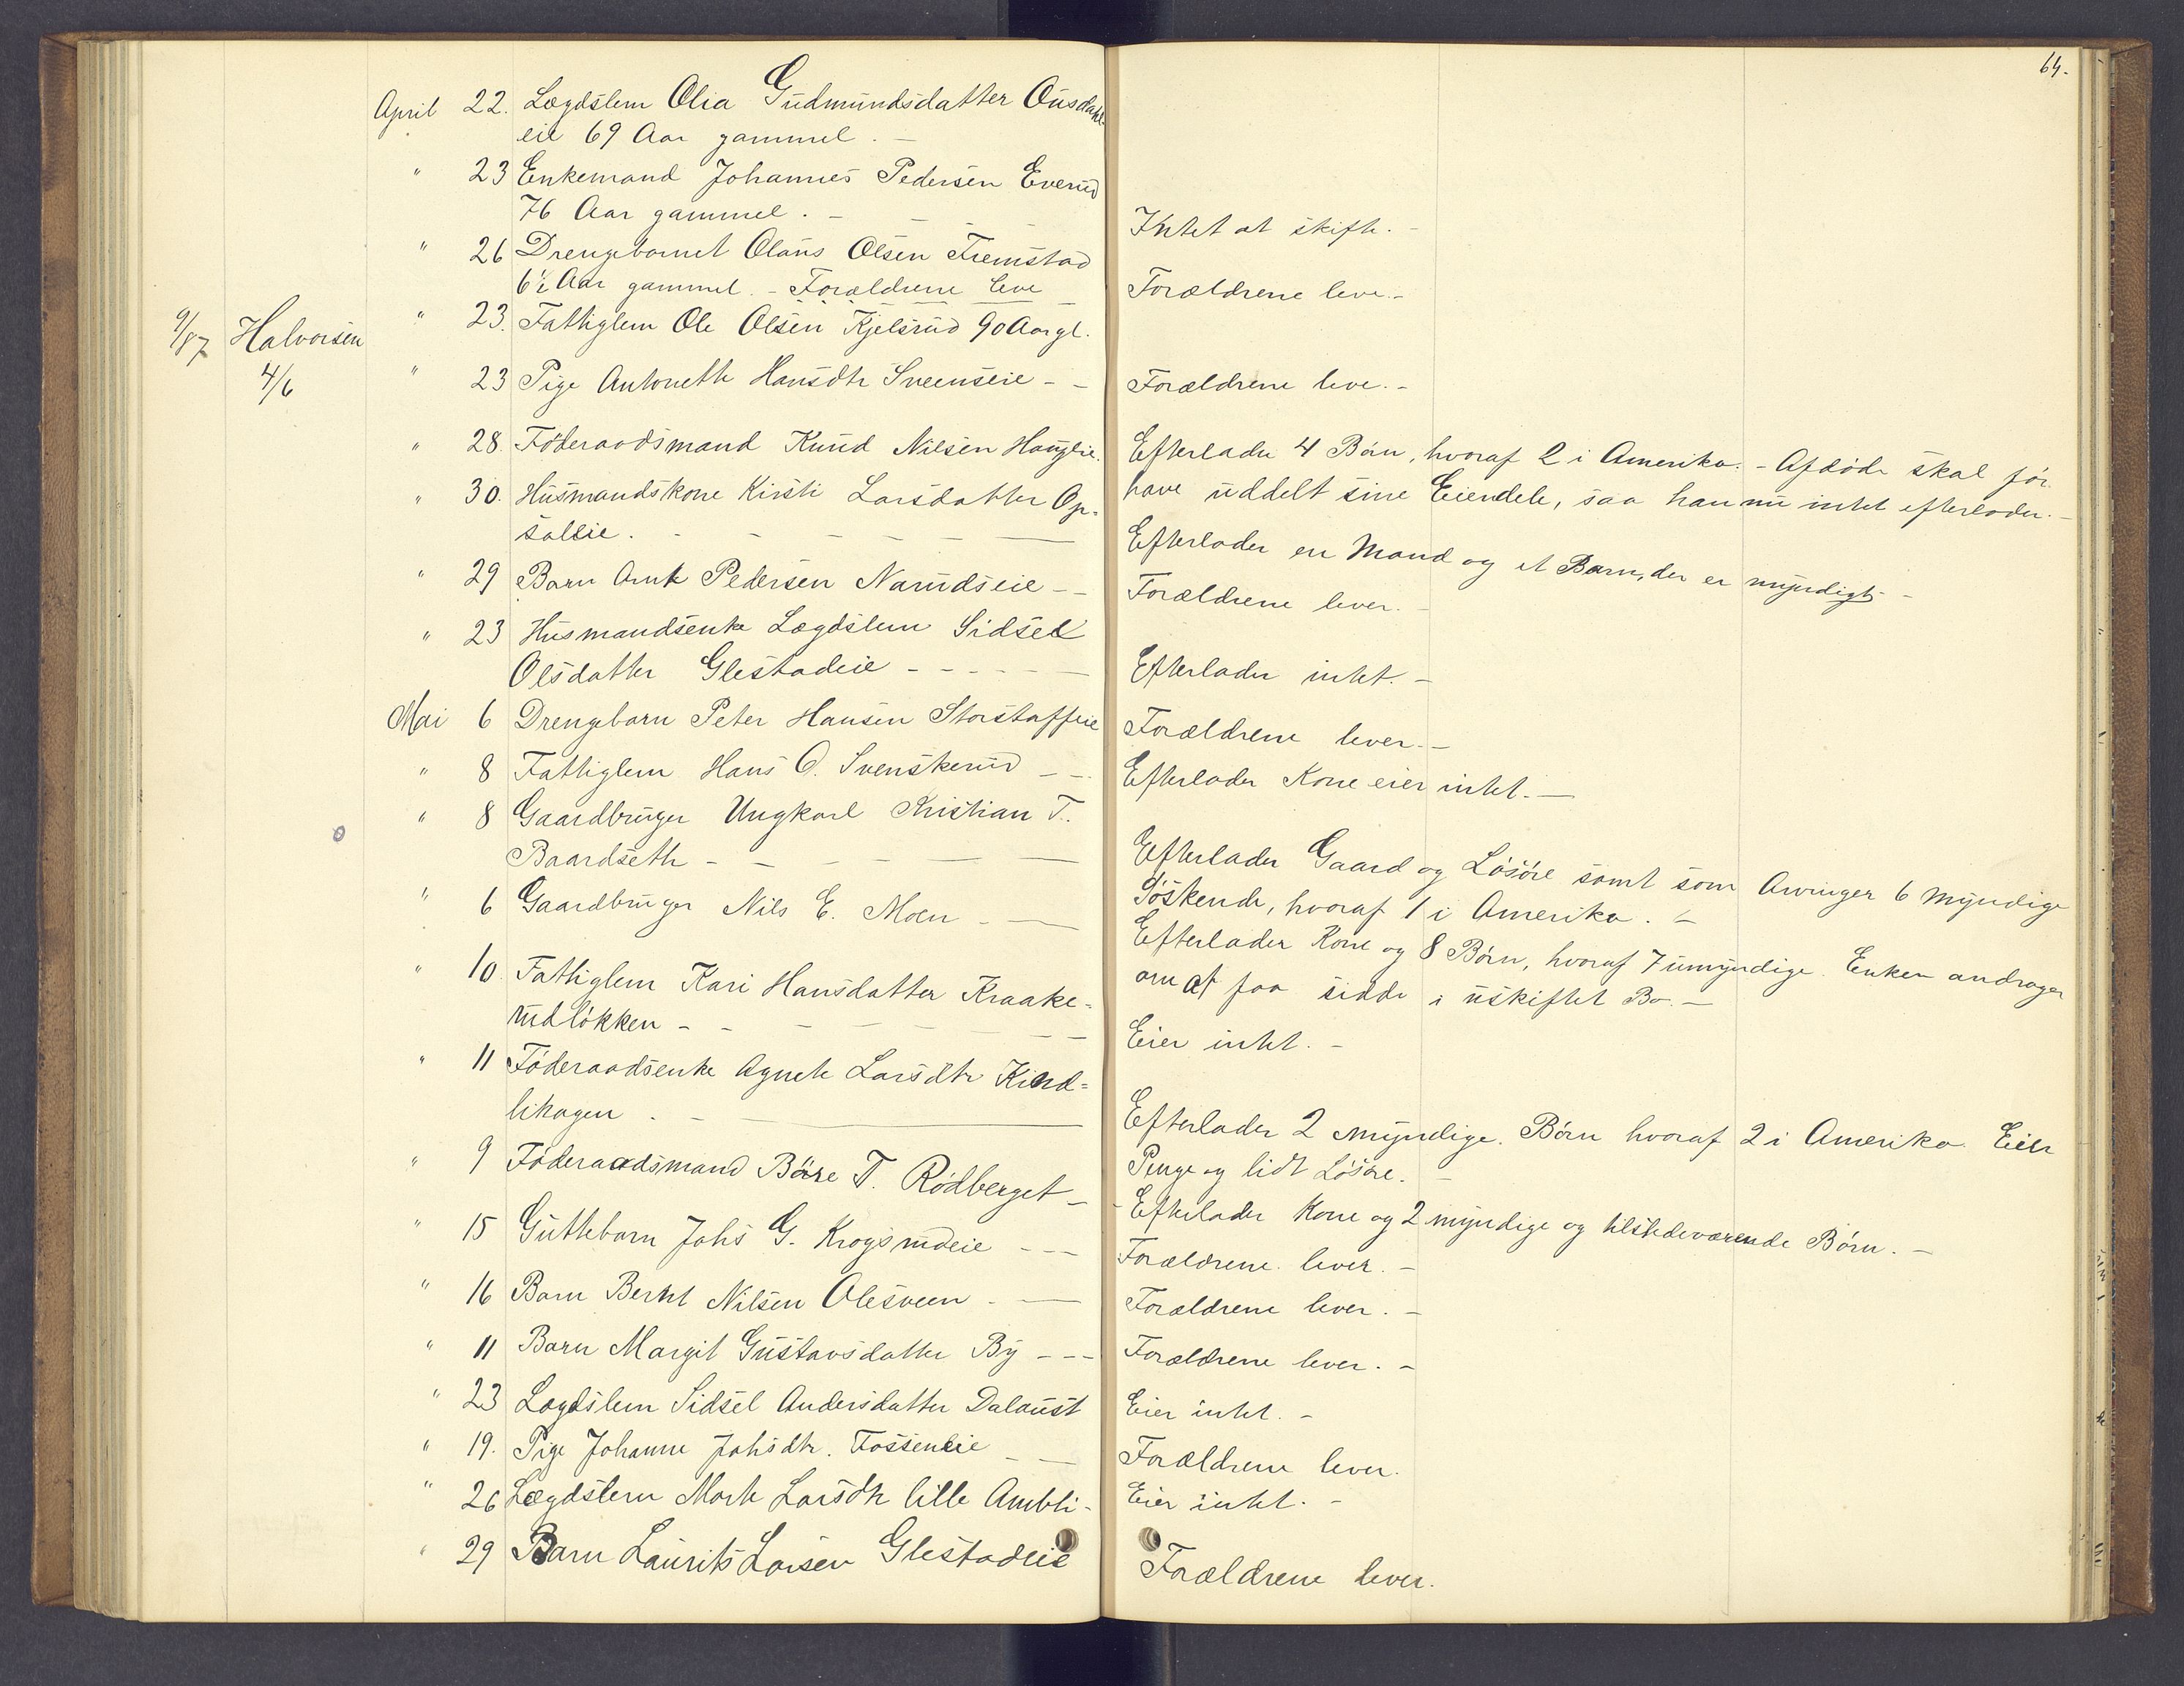 64.
April 22. Lægdslem Olia Gudmundsdatter Ousdahl-
eie 69 Aar gammel. -
" 23 Enkemand Johannes Pedersen Everud
76 Aar gammel. - Intet at skifte. -
" 26 Drengebarnet Olaus Olsen Fremstad
6½ Aar gammel. - Forældrene leve - Forældrene leve. -
9/87 Halvorsen " 23. Fattiglem Ole Olsen Kjelsrud 90 Aar gl.
4/6 " 23 Pige Antonette Hansdtr Sveenseie - - Forældrene leve. -
" 28. Föderaadsmand Knud Nilsen Hauglie. Efterlader 4 Börn, hvoraf 2 i Amerika. - Afdöde skal för
have uddelt sine Eiendele, saa han nu intet efterlader. -
" 30. Husmandskone Kirsti Larsdatter Op-
saleie. - Efterlader en Mand og et Barn, der er myndigt. -
" 29 Barn Arnt Pedersen Narudseie - - Forældrene lever. -
" 23 Husmandsenke Lægdslem Sidsel
Olsdatter Glestadeie - - - Efterlader intet. -
Mai 6 Drengebarn Peter Hansen Storstaffeie Forældrene lever. -
" 8 Fattiglem Hans O. Svenskerud - - Efterlader Kone eier intet. -
" 8 Gaardbruger Ungkarl Kristian T.
Baardseth - - - Efterlader Gaard og Lösöre samt som Arvinger 6 myndige
Söskende, hvoraf 1 i Amerika. -
" 6 Gaardbruger Nils E. Moen - - Efterlader Kone og 8 Börn, hvoraf 7 umyndige. Enken andrager
om at faa sidde i uskiftet Bo. -
" 10. Fattiglem Kari Hansdatter Kraake-
rudlökken - - - Eier intet. -
" 11 Föderaadsenke Agnete Larsdtr Kind-
lihagen. - Efterlader 2 myndige. Börn hvoraf 2 i Amerika. Eier
Penge og lidt Lösöre. -
" 9 Föderaadsmand Börre T. Rödberget - - Efterlader Kone og 2 myndige og tilstedeværende Börn. -
" 15 Guttebarn Johs G. Krogsrudeie - - - Forældrene lever. -
" 16 Barn Bernt Nilsen Olesveen - - Forældrene lever. -
" 11 Barn Margit Gustavsdatter By - - - Forældrene lever. -
" 23 Lægdslem Sidsel Andersdatter Dalaust Eier intet. -
" 19. Pige Johanne Johsdtr. Fosseneie - - Forældrene lever.
" 26 Lægdslem Marte Larsdtr lille Ambli - Eier intet. -
" 29 Barn Laurits Larsen Glestadeie Forældrene lever.